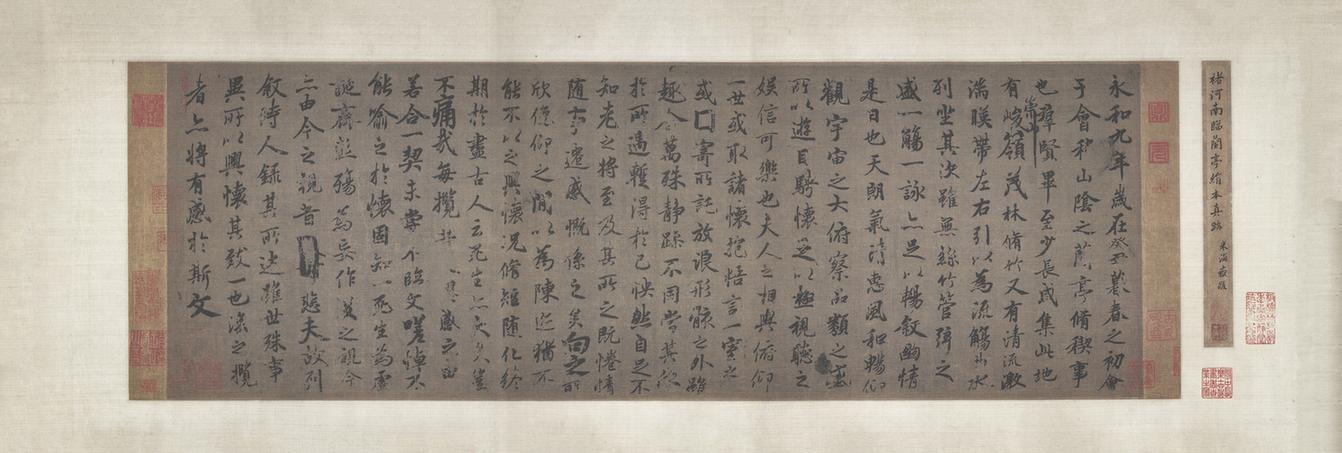 褚河南臨蘭亭絹本真跡
永和九年歲在癸丑暮春之初會
于會稽山陰之蘭亭脩稧事
也羣賢畢至少長咸集此地
有峻領茂林脩竹又有清流激
湍暎帶左右引以為流觴曲水
列坐其次雖無絲竹管弦之
盛一觴一詠亦足以暢敘幽情
是日也天朗氣清惠風和暢仰
觀宇宙之大俯察品類之盛
所以遊目騁懷足以極視聽之
娛信可樂也夫人之相與俯仰
一世或取諸懷抱悟言一室之
或因寄所託放浪形骸之外雖
趣舍萬殊靜躁不同當其欣
於所遇暫得於己怏然自足不
知老之將至及其所之既惓情
隨事遷感慨係之矣向之所
欣俛仰之間以為陳迹猶不
能不以之興懷況脩短隨化終
期於盡古人云死生亦大矣豈
不痛哉每攬昔感之由
若合一契未嘗不臨文嗟悼不
能喻之於懷固知一死生為虛
誕齊彭殤為妄作後之視今
亦由今之視昔悲夫故列
敘時人錄其所述雖世殊事
異所以興懷其致一也後之攬
者亦將有感於斯文